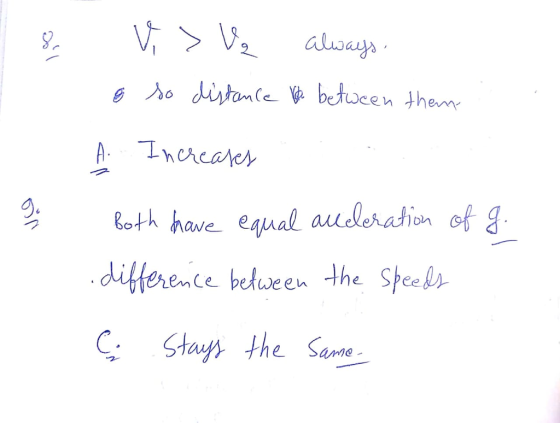 8. V₁ > V₂ always.
so distance between them
A. Increases
9. Both have equal acceleration of g.
. difference between the speeds
C. Stays the same.